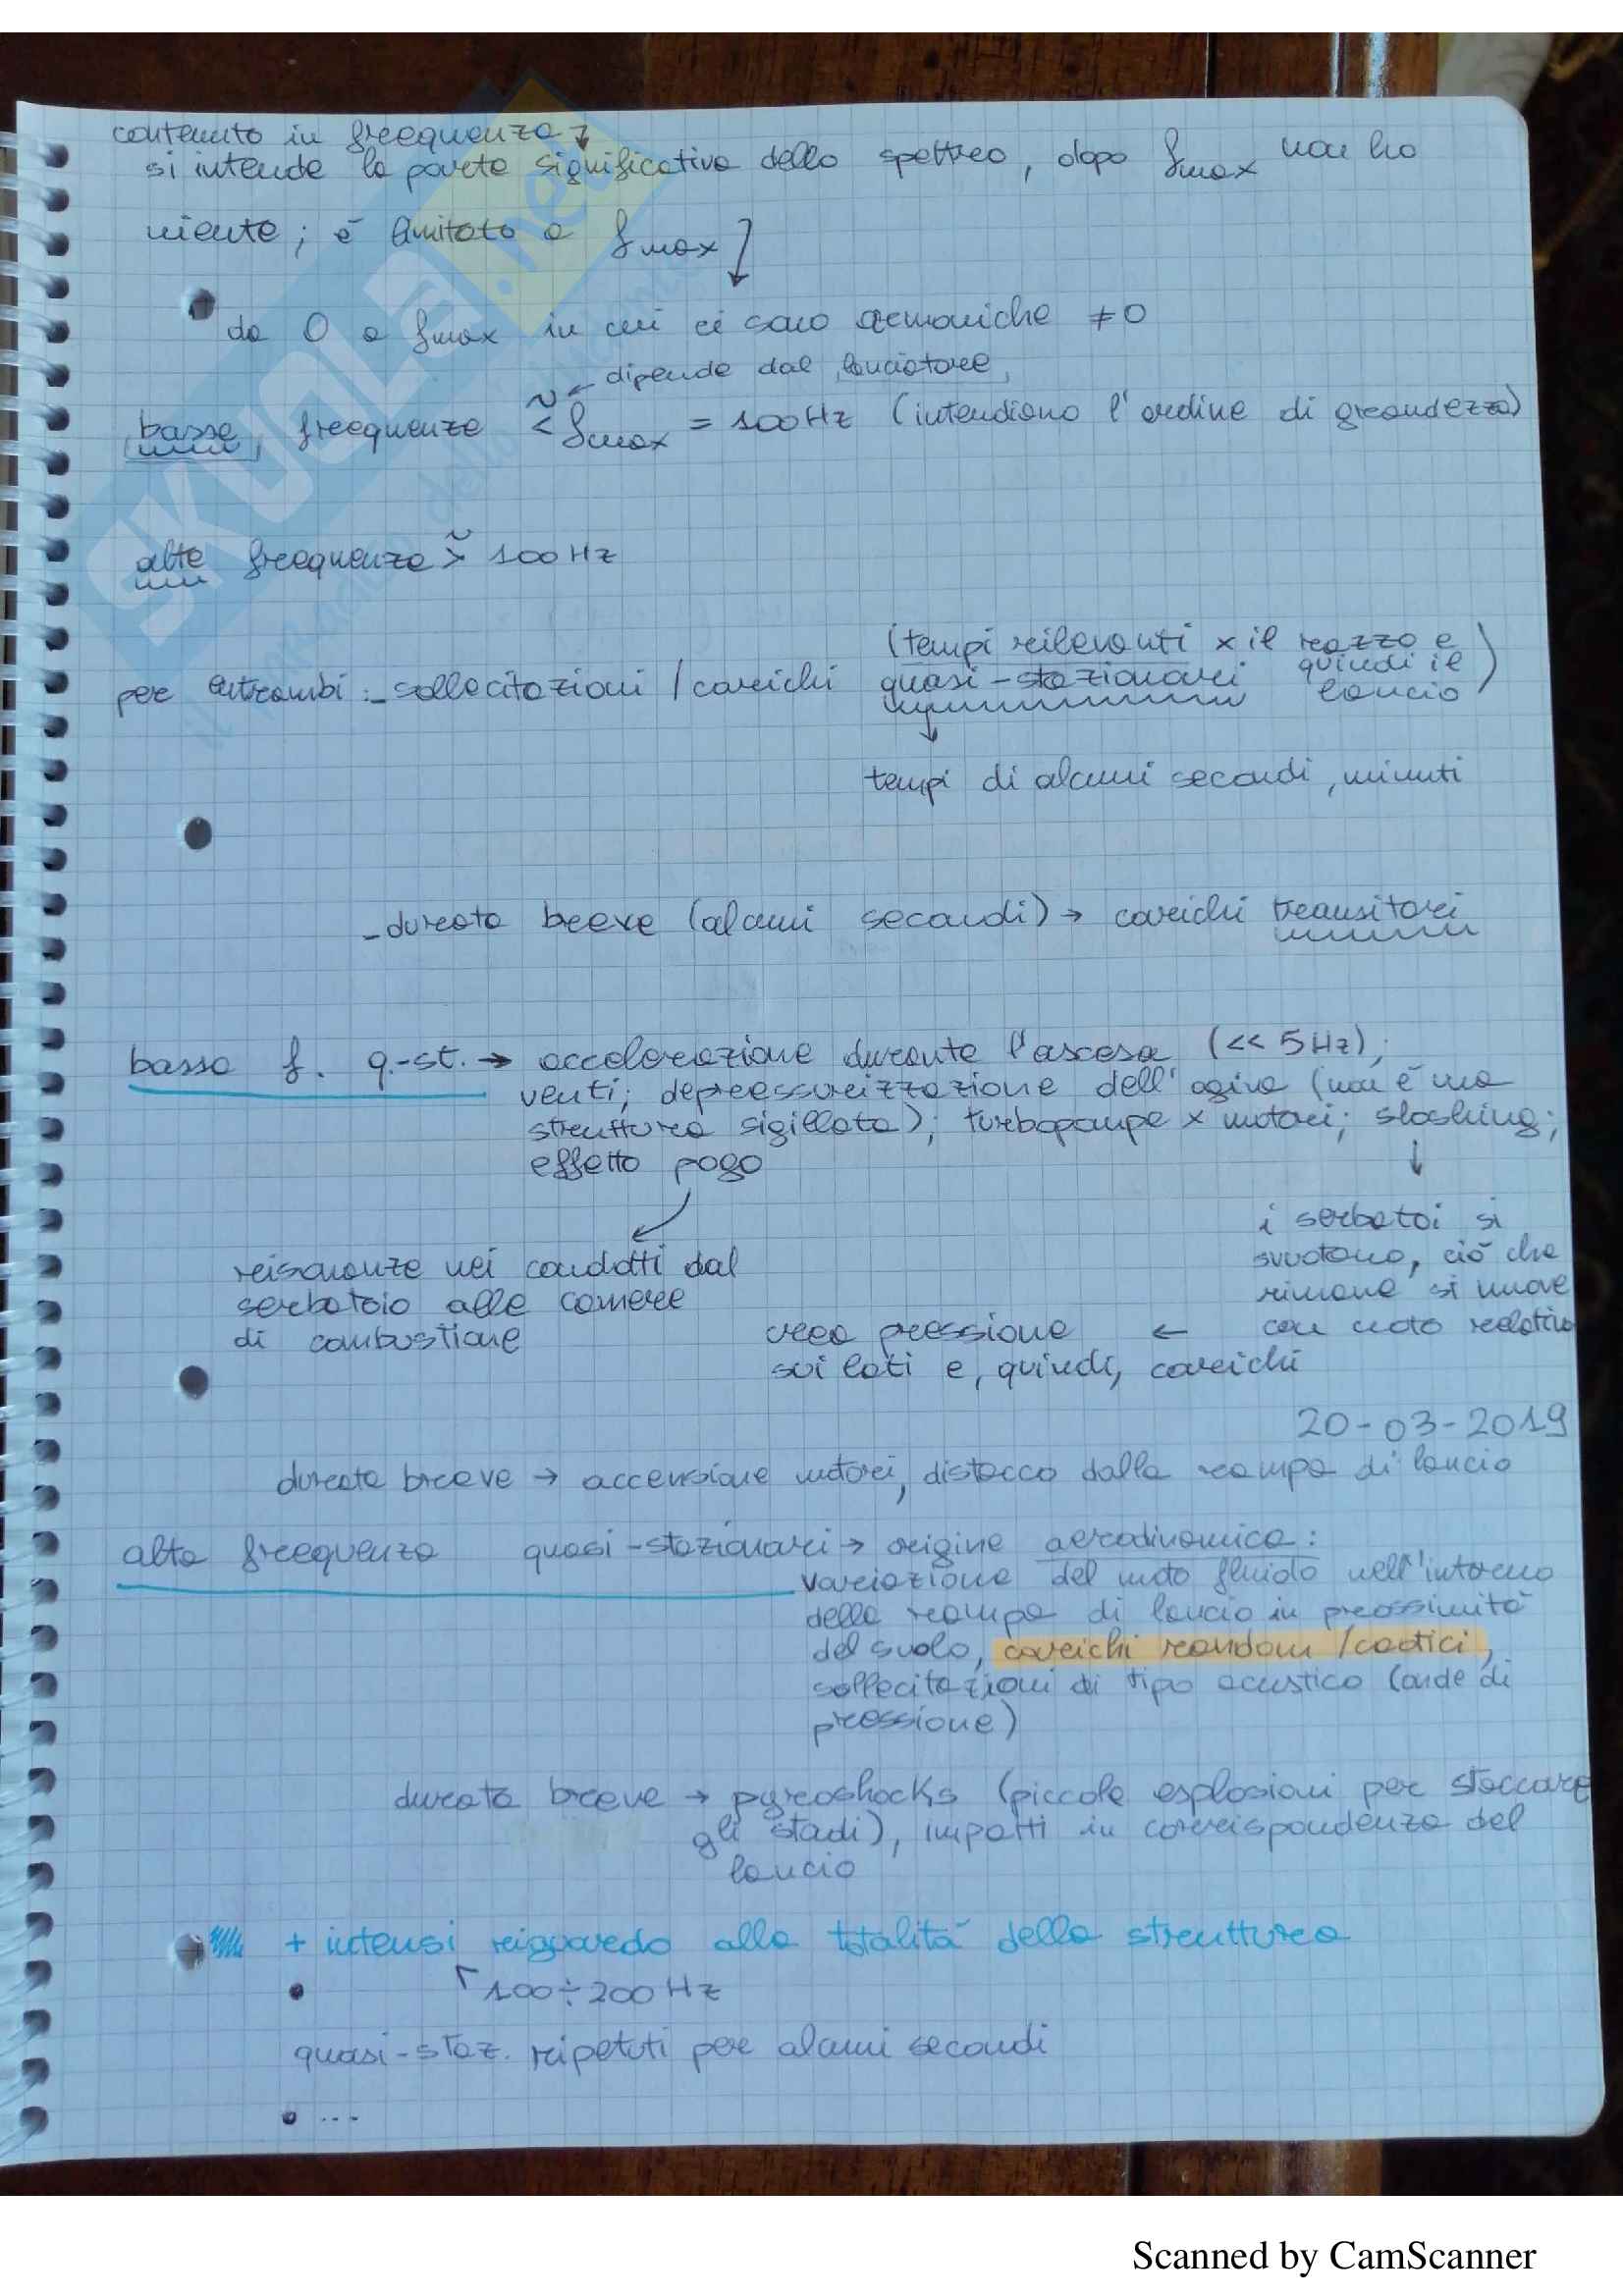 contenuto in frequenza ↴
si intende la parte significativa dello spettro, dopo fmax non ho
niente; è limitato a fmax
da 0 a fmax in cui ci sono armoniche ≠0
← dipende dal lanciatore
basse frequenze ≲ fmax = 100Hz (intendiamo l'ordine di grandezza)
alte frequenze ≳ 100Hz
(tempi rilevanti x il razzo e quindi il lancio)
per entrambi: - sollecitazioni / carichi quasi-stazionari
↓
tempi di alcuni secondi, minuti
- durata breve (alcuni secondi) → carichi transitori
bassa f. q.-st. → accelerazione durante l'ascesa (<< 5Hz);
venti; depressurizzazione dell'ogiva (non è una
struttura sigillata); turbopompe x motori; sloshing;
effetto pogo
↓
i serbatoi si
svuotano, ciò che
rimane si muove
con moto relativo
risonanze nei condotti dal
serbatoio alle camere
di combustione
crea pressione ←
sui lati e, quindi, carichi
20-03-2019
durata breve → accensione motori, distacco dalla rampa di lancio
alta frequenza quasi-stazionari → origine aerodinamica:
variazione del moto fluido nell'intorno
della rampa di lancio in prossimità
del suolo, carichi random / caotici,
sollecitazioni di tipo acustico (onde di
pressione)
durata breve → pyroshocks (piccole esplosioni per staccare
gli stadi), impatti in corrispondenza del
lancio
+ intensi riguardo alla totalità della struttura
• 100÷200Hz
quasi-staz. ripetuti per alcuni secondi
• ...
SKUOLA.net
Scanned by CamScanner